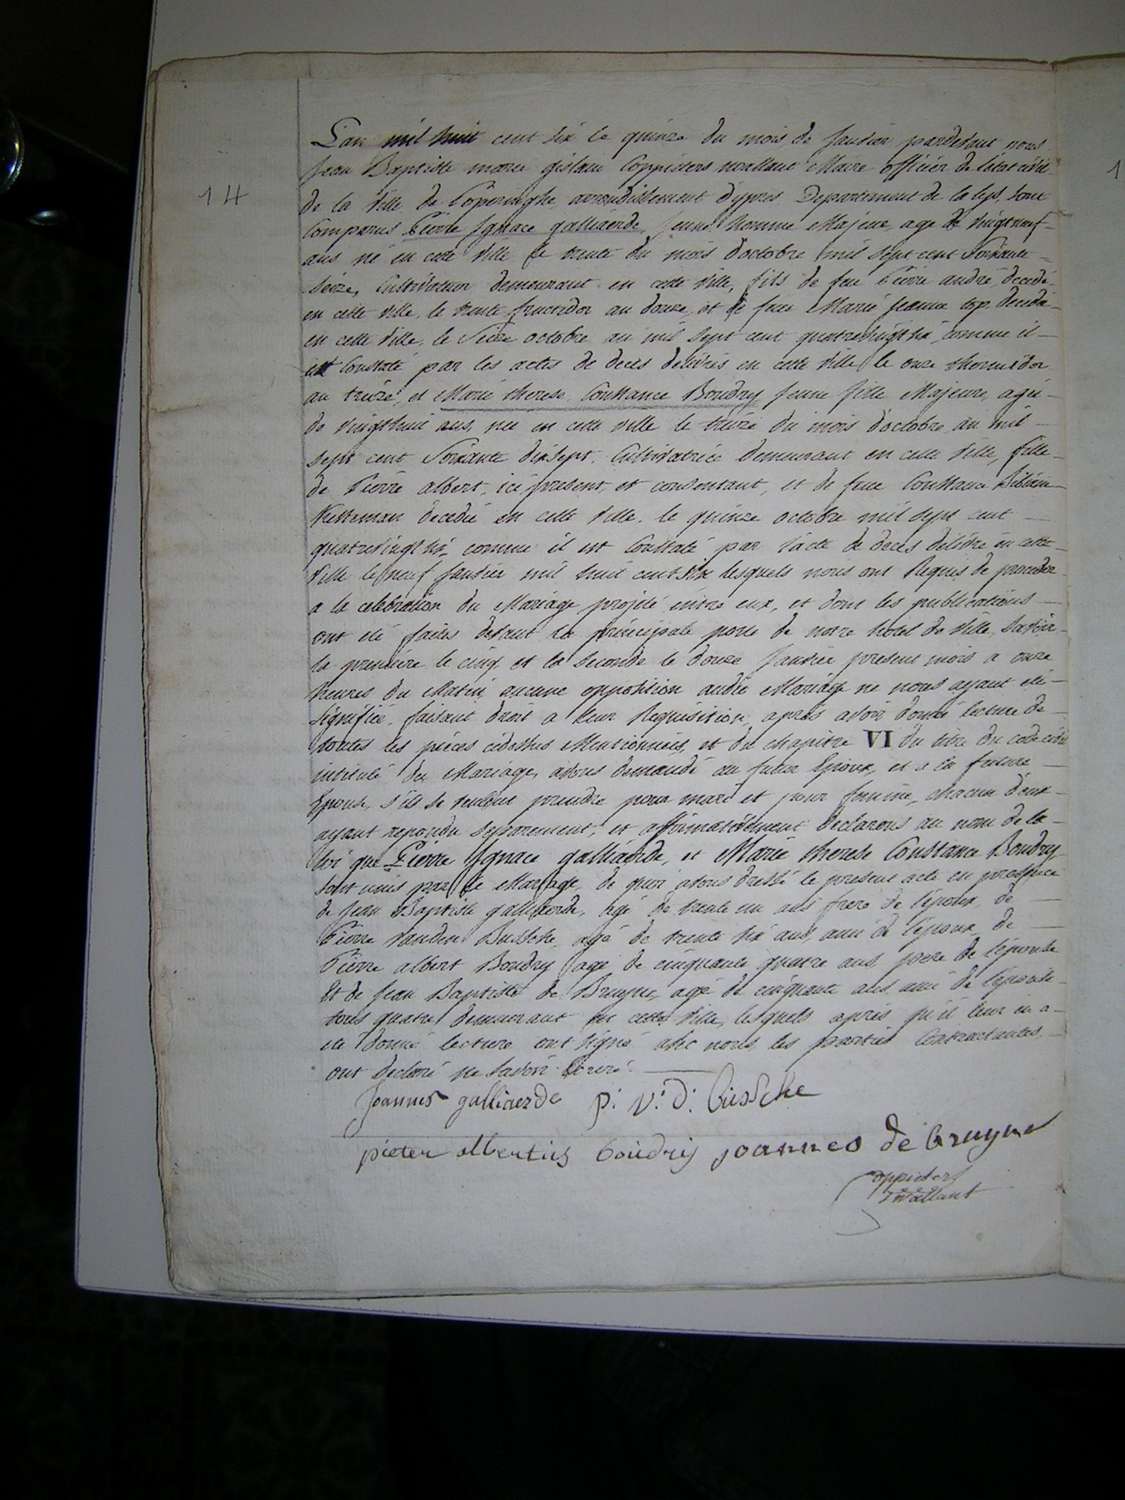 14
L'an mil huit cent six le quinze du mois de Janvier pardevant nous
Jean Baptiste marie gislain Coppieters wallant Maire officier de l'etat civil
de la Ville de Poperinghe, arrondissement d'ypres Departement de la Lys, sont
Comparus Pierre Ignace galliaerde, Jeune homme Majeur, agé de vingtneuf
ans né en cette Ville le trente du mois d'octobre mil sept cent Soixante
Seize, Cultivateur demeurant en cette ville, fils de feu Pierre andré decedé
en cette ville, le trente fructidor an douze, et de feue Marie Jeanne top decedée
en cette Ville, le Seize octobre an mil sept cent quatrevingt six, comme il
est Constaté par les actes de decès delivrés en cette Ville le onze thermidor
an treize, et Marie therese Constance Boudry Jeune fille Majeure, agée
de vingthuit ans, née en cette ville le treize du mois d'octobre an mil
sept cent Soixante dixsept. Cultivatrice demeurant en cette Ville, fille
de Pierre albert, ici present, et consentant, et de feue Constance
decedée en cette Ville, le quinze octobre mil sept cent
comme il est Constaté par l'acte de deces delivré en cette
Ville le neuf Janvier mil huit cent six lesquels nous ont Requis de proceder
a la celebration du Mariage projeté entre eux, et dont les publications
ont eté faites devant la principale porte de notre hotel de Ville, Savoir
la premiere le cinq et la Seconde le douze Janvier present mois a onze
heures du Matin aucune opposition audit Mariage ne nous ayant eté
Signifié, faisant droit a leur Requisition, après avoir donné lecture de
toutes les pièces cidessus Mentionnées, et du chapitre VI du titre du code civil
intitulé du Mariage, avons demandé au futur Epoux, et a la future
Epouse, s'ils se veulent prendre pour mari et pour femme, chacun d'eux
ayant repondu Separement, et affirmativement declarons au nom de la
loi que Pierre Ignace galliaerde, et Marie therese Constance Boudry
sont unis par le Mariage, de quoi avons dressé le present acte en presence
de Jean Baptiste galliaerde, agé de trente un ans frere de l'epoux, de
Pierre Vanden Bussche, agé de trente six ans, ami de l'epoux, de
Pierre albert Boudry agé de cinquante quatre ans, pere de l'epouse
et de Jean Baptiste de Bruyne, agé de cinquante ans ami de l'epouse
tous quatre demeurant en cette Ville, lesquels après qu'il leur en a
eté donné lecture ont signé avec nous, les parties Contractantes,
ont declaré ne Savoir Ecrire.
Joannes galliaerde p: v: d: bussche
pieter albertus boudry joannes de bruyne
Coppieters
wallant